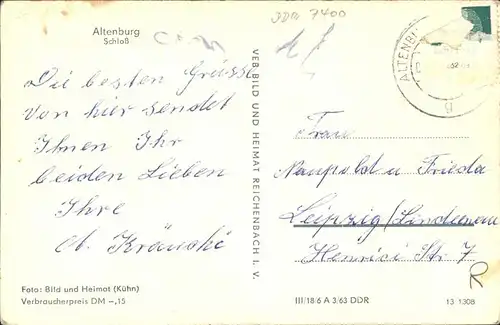 Altenburg
Schloß
3DDR 7400
Die besten Grüsse
von hier sendet
Ihnen Ihr
beiden Lieben
Ihre
Foto: Bild und Heimat (Kühn)
Verbraucherpreis DM –,15
VEB BILD UND HEIMAT REICHENBACH I. V.
ALTENBU
g
Frau
u Frieda
Leipzig/Lindenau
Henrici Str 7
R
III/18 6 A 3/63 DDR
13 1308